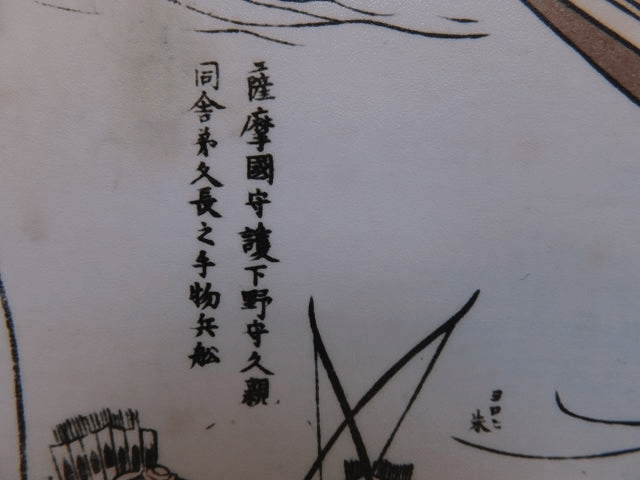 薩摩國守護下野守久親
同舎弟久長之手物兵舩
ヨロヒ
朱